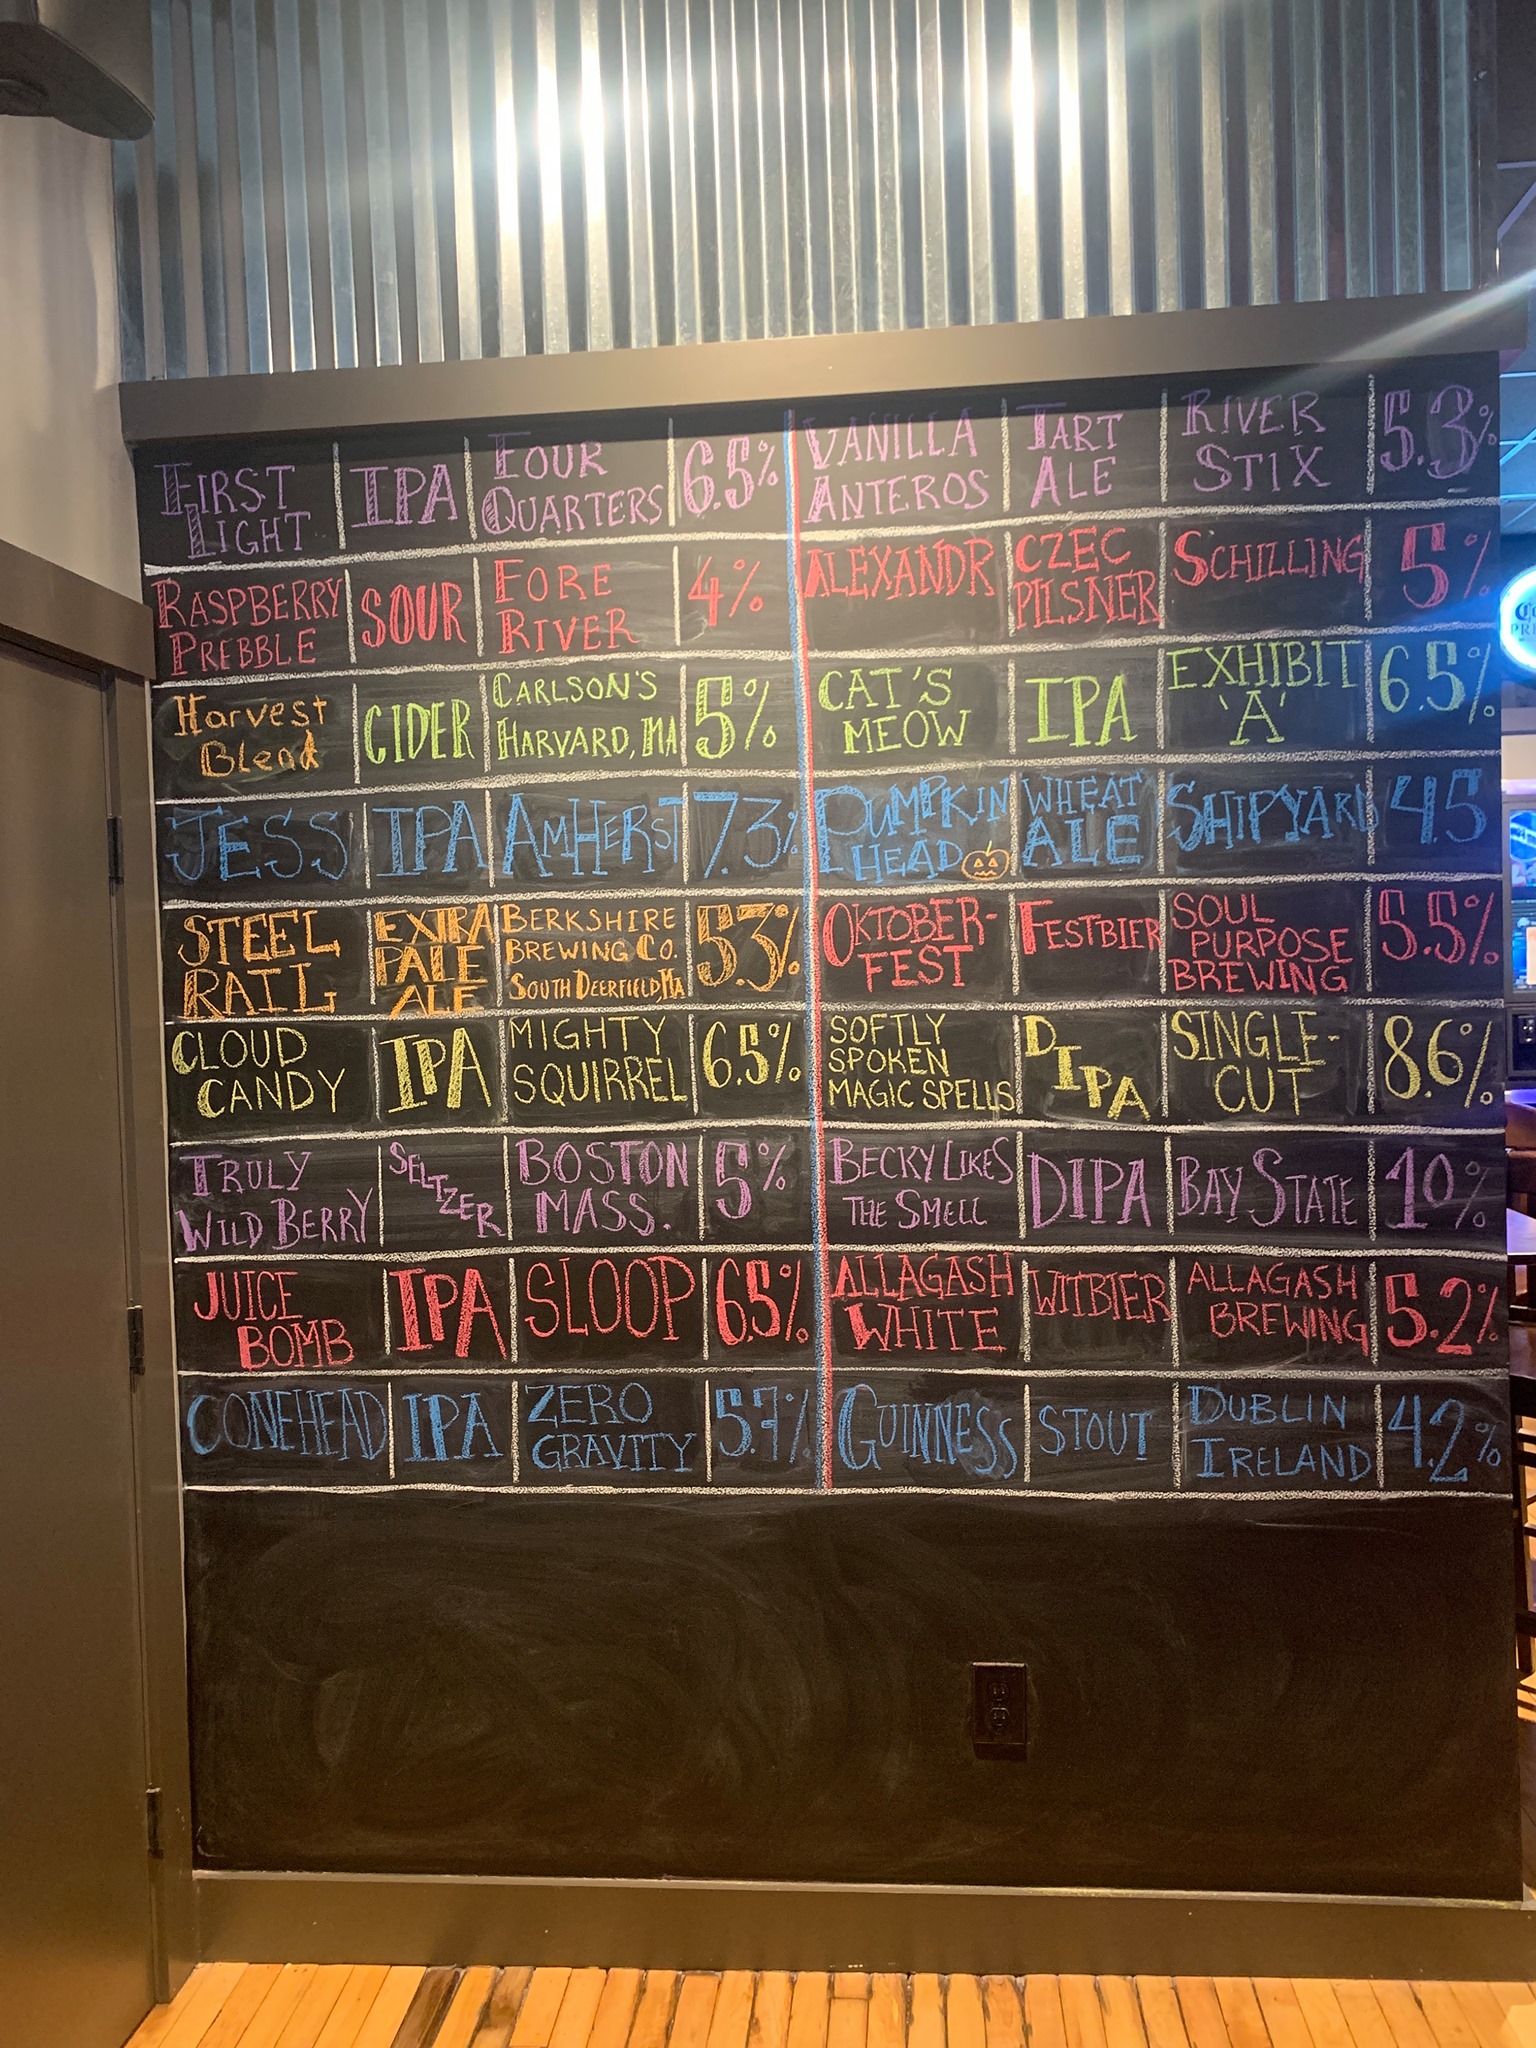 FIRST LIGHT IPA FOUR QUARTERS 6.5%
RASPBERRY PREBBLE SOUR FORE RIVER 4%
Harvest Blend CIDER CARLSON'S HARVARD, MA 5%
JESS IPA AMHERST 7.3%
STEEL RAIL EXTRA PALE ALE BERKSHIRE BREWING CO. SOUTH DEERFIELD MA 5.3%
CLOUD CANDY IPA MIGHTY SQUIRREL 6.5%
TRULY WILD BERRY SELTZER BOSTON MASS. 5%
JUICE BOMB IPA SLOOP 6.5%
CONEHEAD IPA ZERO GRAVITY 5.7%
VANILLA ANTEROS TART ALE RIVER STIX 5.3%
ALEXANDR CZEC PILSNER SCHILLING 5%
CAT'S MEOW IPA EXHIBIT 'A' 6.5%
PUMPKIN HEAD WHEAT ALE SHIPYARD 4.5
OKTOBER-FEST FESTBIER SOUL PURPOSE BREWING 5.5%
SOFTLY SPOKEN MAGIC SPELLS DIPA SINGLE-CUT 8.6%
BECKY LIKES THE SMELL DIPA BAY STATE 10%
ALLAGASH WHITE WITBIER ALLAGASH BREWING 5.2%
GUINNESS STOUT DUBLIN IRELAND 4.2%